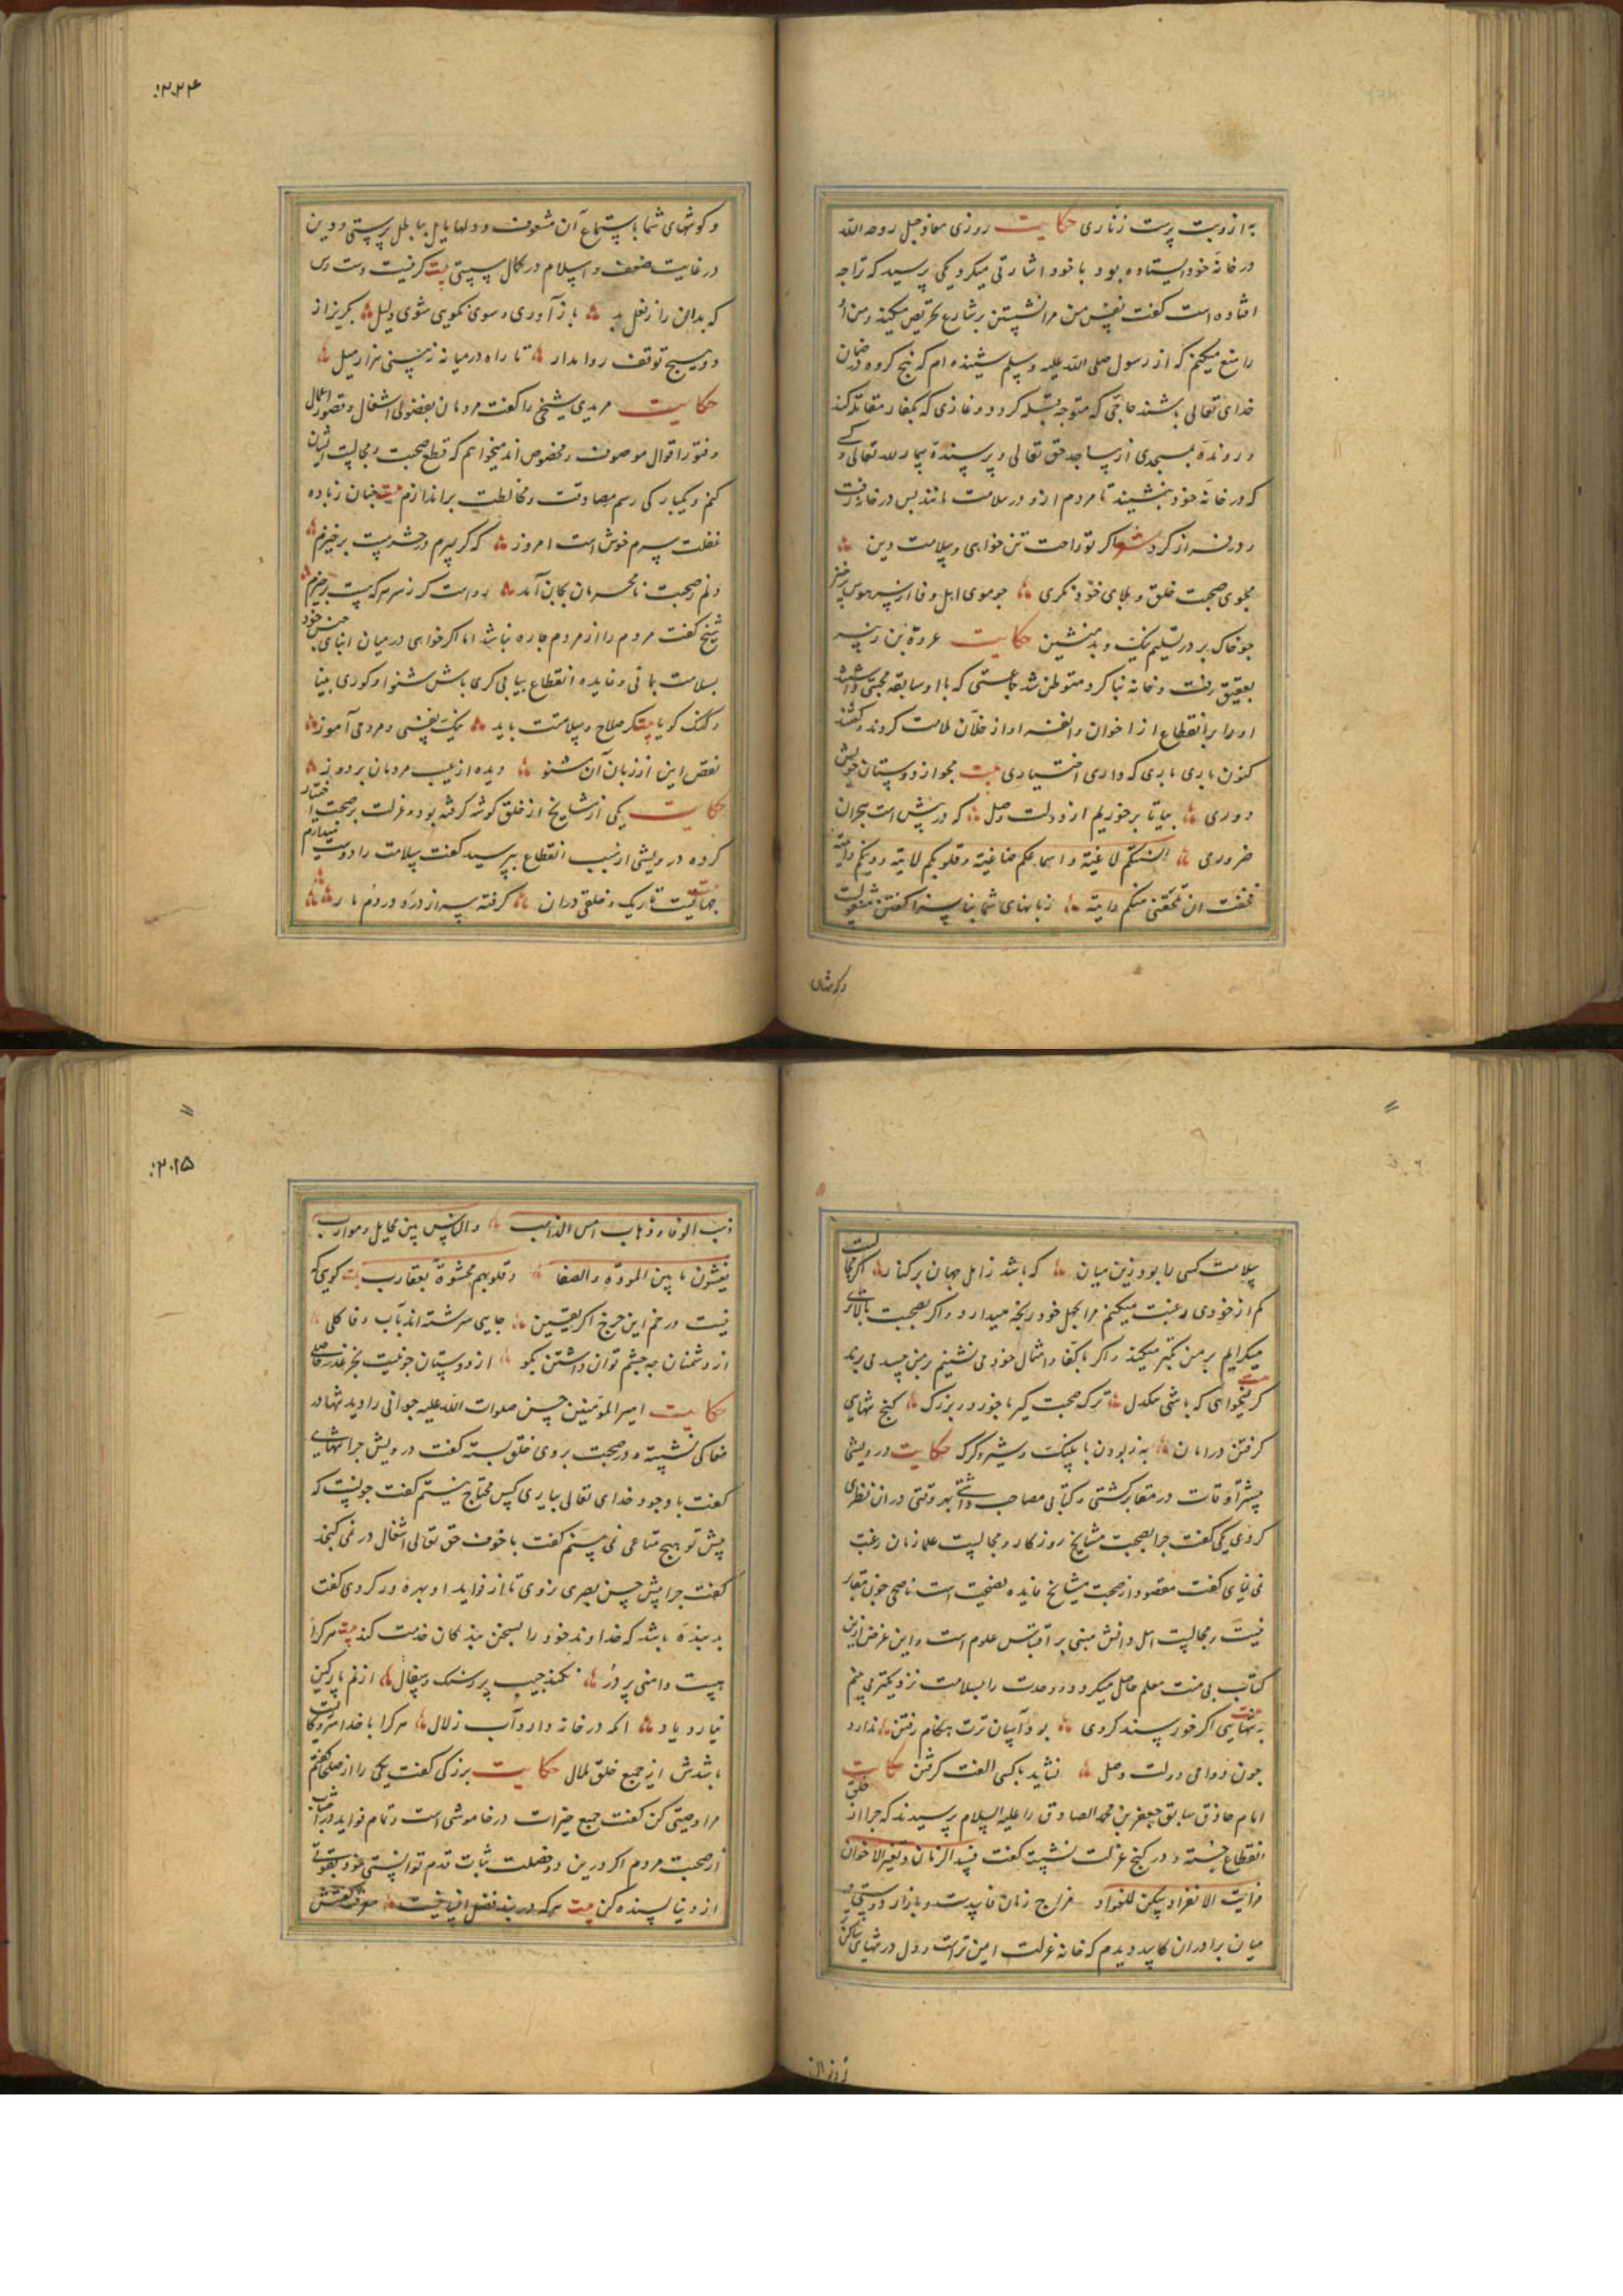 به از زهد بت پرست زناری حکایت روزی معاذ جبل رحمه الله
در خانه خود ایستاده بود با خود اشارتی میکرد یکی پرسید که ترا چه
افتاده است گفت نفس من مرا نشستن بر شارع تحریص میکند و من او
را منع میکنم که از رسول صلی الله علیه و سلم شنیده ام که پنج کروه در ضمان
خدای تعالی باشند حاجی که متوجه قبله کردد و غازی که بکفار مقاتله کند
و رونده بمسجدی از مساجد حق تعالی و پرسنده بیمار لله تعالی و کسی
که در خانه خود بنشیند تا مردم ازو در سلامت مانند پس در خانه رفت
و در فراز کرد شعر اکر تو راحت تن خواهی و سلامت دین
مجوی صحبت خلق و بلای خود نکری چو موی اهل وفا از سر هوس برخیز
چو خاک بر در تسلیم نیک و بد منشین حکایت عروة بن زبیر
بعقیق رفت و خانه بنا کرد و متوطن شد جماعتی که با او سابقه محبتی داشتند
او را بر انقطاع از اخوان و انفراد از خلان ملامت کردند و گفتند
کنون باری باری که داری اختیاری بیت مجو از دوستان خویش
دوری بیا تا برخوریم از دولت وصل که در پیش است هجران
ضروری السنتکم لاغیة و اسماعکم صاغیة و قلوبکم لاهیة و دینکم واهیة
فخفت ان تلحقنی منکم داهیة زبانهای شما بناسزا گفتن مشغولست
و کوشهای
۲۰۲۴
و کوشهای شما باستماع آن مشعوف و دلها مایل بباطل پرستی و دین
در غایت ضعف و اسلام در کمال سستی بیت کر نیست دست رس
که بدان را ز فعل بد باز آوری و سوی نکویی شوی دلیل بکریز از
و هیچ توقف روا مدار تا راه در میانه نبینی هزار میل
حکایت مریدی شیخی را گفت مردمان بفضولی اشغال و قصور اعمال
و فتور اقوال موصوف و مخصوص اند میخواهم که قطع صحبت و مجالست ایشان
کنم و یکبارکی رسم مصادقت و مخالطت براندازم بیت چنان ز باده
غفلت سرم خوش است امروز که کر بمیرم در حشر مست برخیزم
دلم ز صحبت نامحرمان بجان آمد رواست کر ز سر هر که هست برخیزم
شیخ گفت مردم را از مردم چاره نباشد اما اکر خواهی در میان ابنای جنس خود
بسلامت بمانی و فایده انقطاع بیابی کری باش شنوا و کوری بینا
و گنگ کویا بیت کر صلاح و سلامتت باید نیک نفسی و مردمی آموز
نقص این از زبان آن مشنو دیده از عیب مردمان بردوز
حکایت یکی از مشایخ از خلق کوشه کرفته بود و عزلت بر صحبت اختیار
کرده درویشی از سبب انقطاع بپرسید گفت سلامت را دوست میدارم
جهانیست تاریک و خلقی دران کرفته سر از درد در دم مار
سلامت کسی را بود زین میان که باشد ز اهل جهان بر کنار اکر مجالست
کم از خودی رغبت میکنم مرا بجهل خود رنجه میدارد و اکر بصحبت بالاتری
میکرایم بر من تکبر میکند و اکر با کفا و امثال خود می نشینم بر من حسد می برند
کر نخواهی که باشی تنکدل ترک صحبت کیر با خورد و بزرک کنج تنهایی
کرفتن در امان به ز بودن با پلنک و شیر و کرک حکایت درویشی
بیشتر اوقات در مقابر کشتی و کتابی مصاحب داشتی هر وقتی دران نظری
کردی یکی گفت چرا بصحبت مشایخ روزکار و مجالست علما زمان رغبت
نمی نمایی گفت مقصود از صحبت مشایخ فایده نصیحت است ناصحی چون مقابر
نیست و مجالست اهل دانش مبنی بر اقتباس علوم است و این غرض ازین
کتاب بی منت معلم حاصل میکردد و وحدت را بسلامت نزدیکتر می بینم
به تنهایی اکر خورسند کردی بود آسان ترت هنکام رفتن ندارد
چون دوامی دولت وصل نشاید با کسی الفت کرفتن حکایت
امام حاذق سابق جعفر بن محمد الصادق را علیه السلام پرسیدند که چرا از خلق
انقطاع جسته و در کنج عزلت نشسته گفت فسد الزمان و تغیر الاخوان
فرایت الانفراد اسکن للفؤاد مزاج زمان فاسدست و بازار دوستی
میان برادران کاسد دیدم که خانه عزلت امین تر است و دل در تنهایی ساکن تر
ذهب الوفا
۲۰۲۵
ذهب الوفا و ذهاب امس الذاهب والناس بین مخایل و موارب
یفشون بینهم المودة والصفا و قلوبهم محشوة بعقارب بیت کویی که
نیست در خم این چرخ اکر یقین جایی سرشته اند بآب وفا کلی
از دشمنان چه چشم توان داشتن بکو از دوستان چو نیست بجز غدر حاصلی
حکایت امیر المؤمنین حسن صلوات الله علیه جوانی را دید تنها در
مغاکی نشسته و در صحبت بروی خلق بسته گفت درویش چرا تنهایی
گفت با وجود خدای تعالی بیاری کس محتاج نیستم گفت چونست که
پیش تو هیچ متاعی نمی بینم گفت با خوف حق تعالی اشغال در نمی کنجد
گفت چرا پیش حسن بصری نروی تا از فواید او بهره ور کردی گفت
بد بنده باشد که خداوند خود را بسخن بندکان خدمت کند بیت هر کرا
هست دامنی پر در نکند جیب پر ز سنک و سفال از نم پارکین
نیارد یاد آنکه در خانه دارد آب زلال هر کرا با خداست سر و کار
باشدش از جمیع خلق ملال حکایت بزرکی گفت یکی را از صلحا گفتم
مرا وصیتی کن گفت جمیع خیرات در خاموشی است و تمام فواید در اجتناب
از صحبت مردم اکر درین دو خصلت ثبات قدم توانستی نمود بقوتی
از دنیا بسنده کن بیت هر که در بند فضل